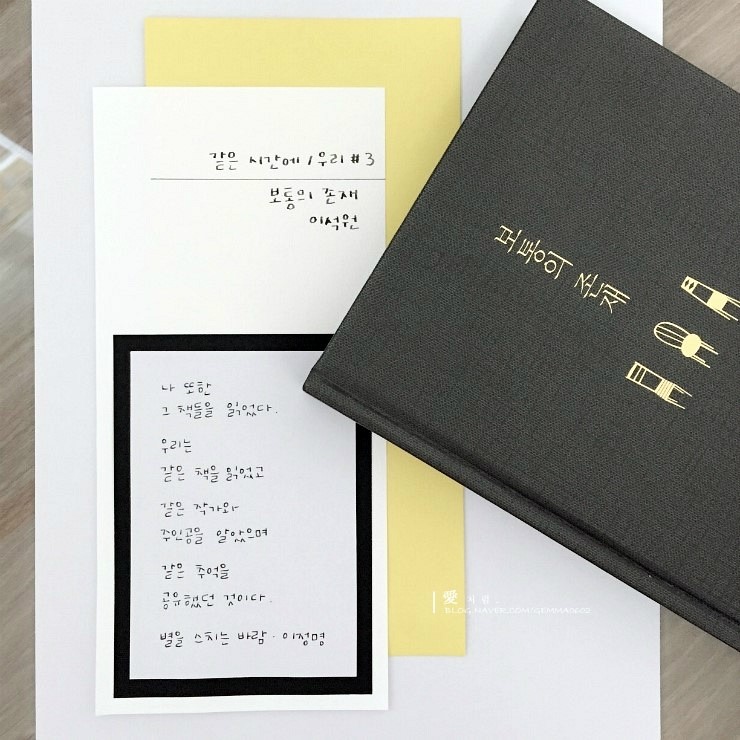 같은 시간에 / 우리 #3
보통의 존재
이석원
나 또한
그 책들을 읽었다.
우리는
같은 책을 읽었고
같은 작가와
주인공을 알았으며
같은 추억을
공유했던 것이다.
별을 스치는 바람 · 이정명
보통의 존재
愛 처럼